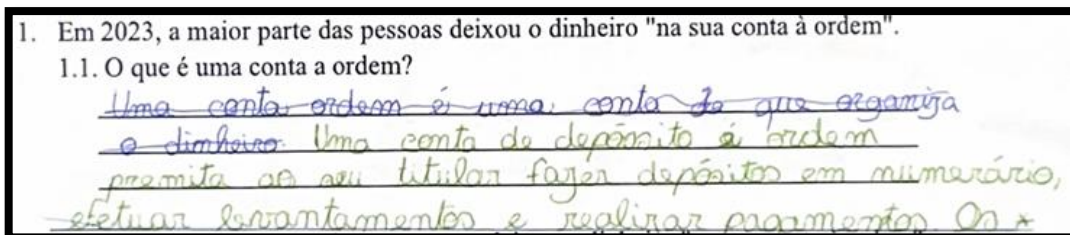 1. Em 2023, a maior parte das pessoas deixou o dinheiro "na sua conta à ordem".
1.1. O que é uma conta a ordem?
Uma conta ordem é uma conta de que organiza
o dinheiro. Uma conta de depósito á ordem
premita ao seu titular fazer depósitos em numerário,
efetuar levantamentos e realizar pagamentos. Os *